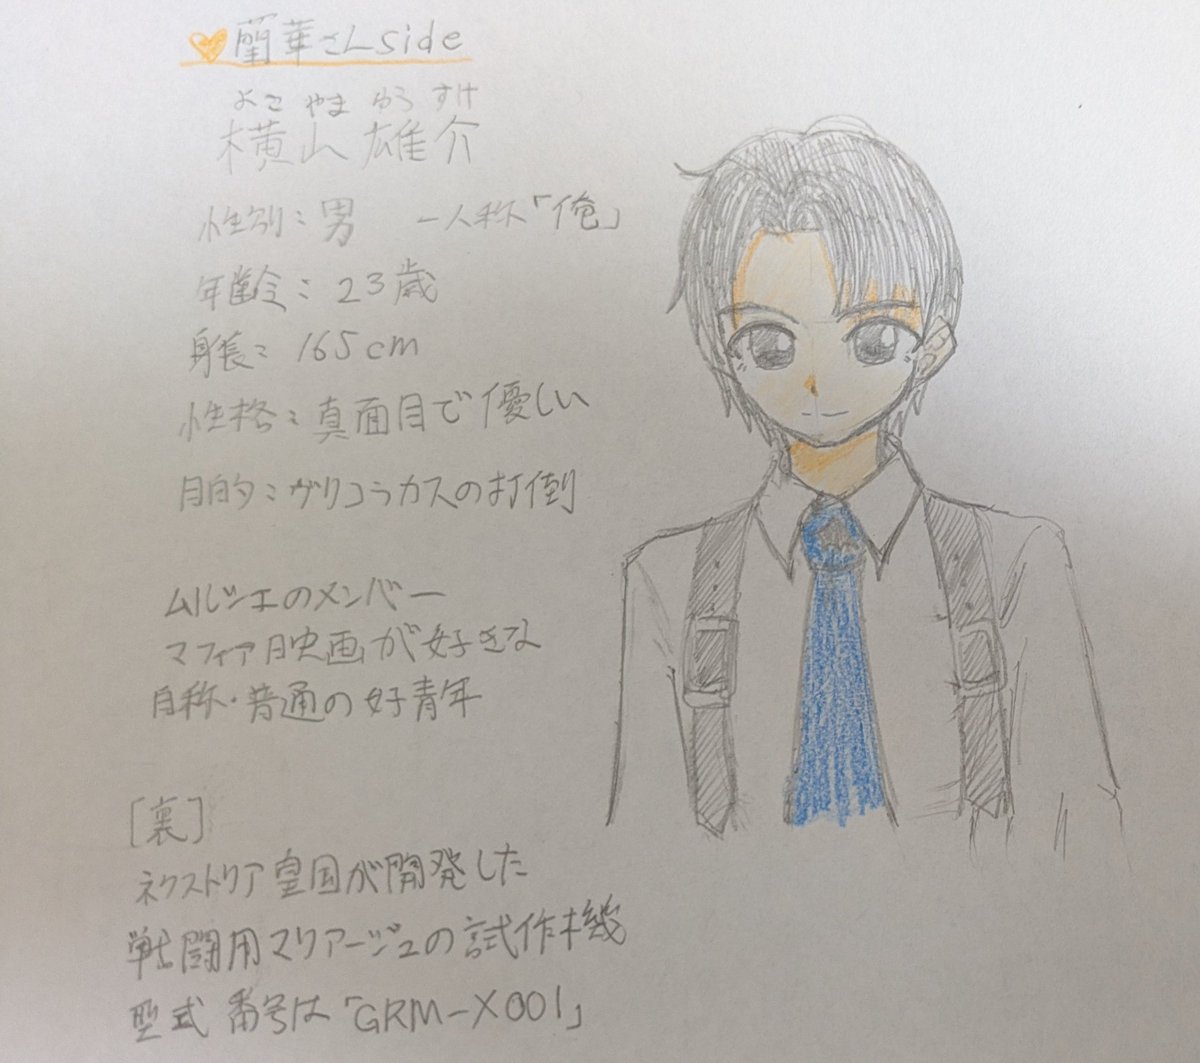 蘭華さんside
よこ やま ゆう すけ
横山 雄介
性別：男 一人称「俺」
年齢：23歳
身長：165cm
性格：真面目で優しい
目的：ヴリコラカスの打倒
ムルシエのメンバー
マフィア映画が好きな
自称・普通の好青年
[裏]
ネクストリア皇国が開発した
戦闘用マリアージュの試作機
型式番号は「GRM-X001」